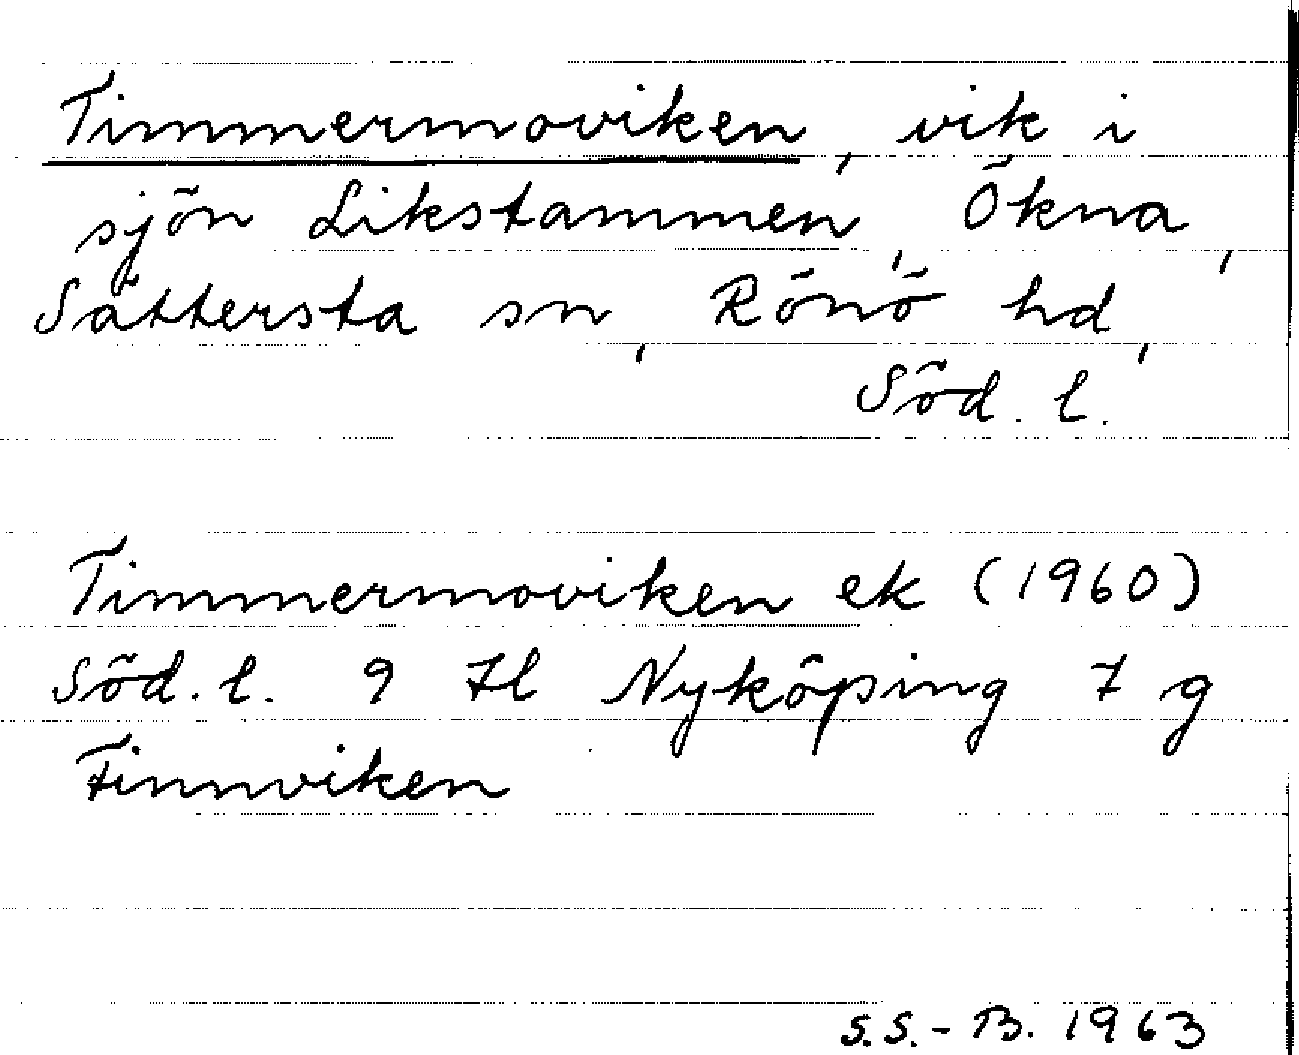 Timmermoviken, vik i
sjön Likstammen, Ökna,
Sättersta sn, Rönö hd,
Söd. l.
Timmermoviken ek (1960)
Söd. l. 9 Nyköping 7 g
Finnviken
S.S.-B. 1963